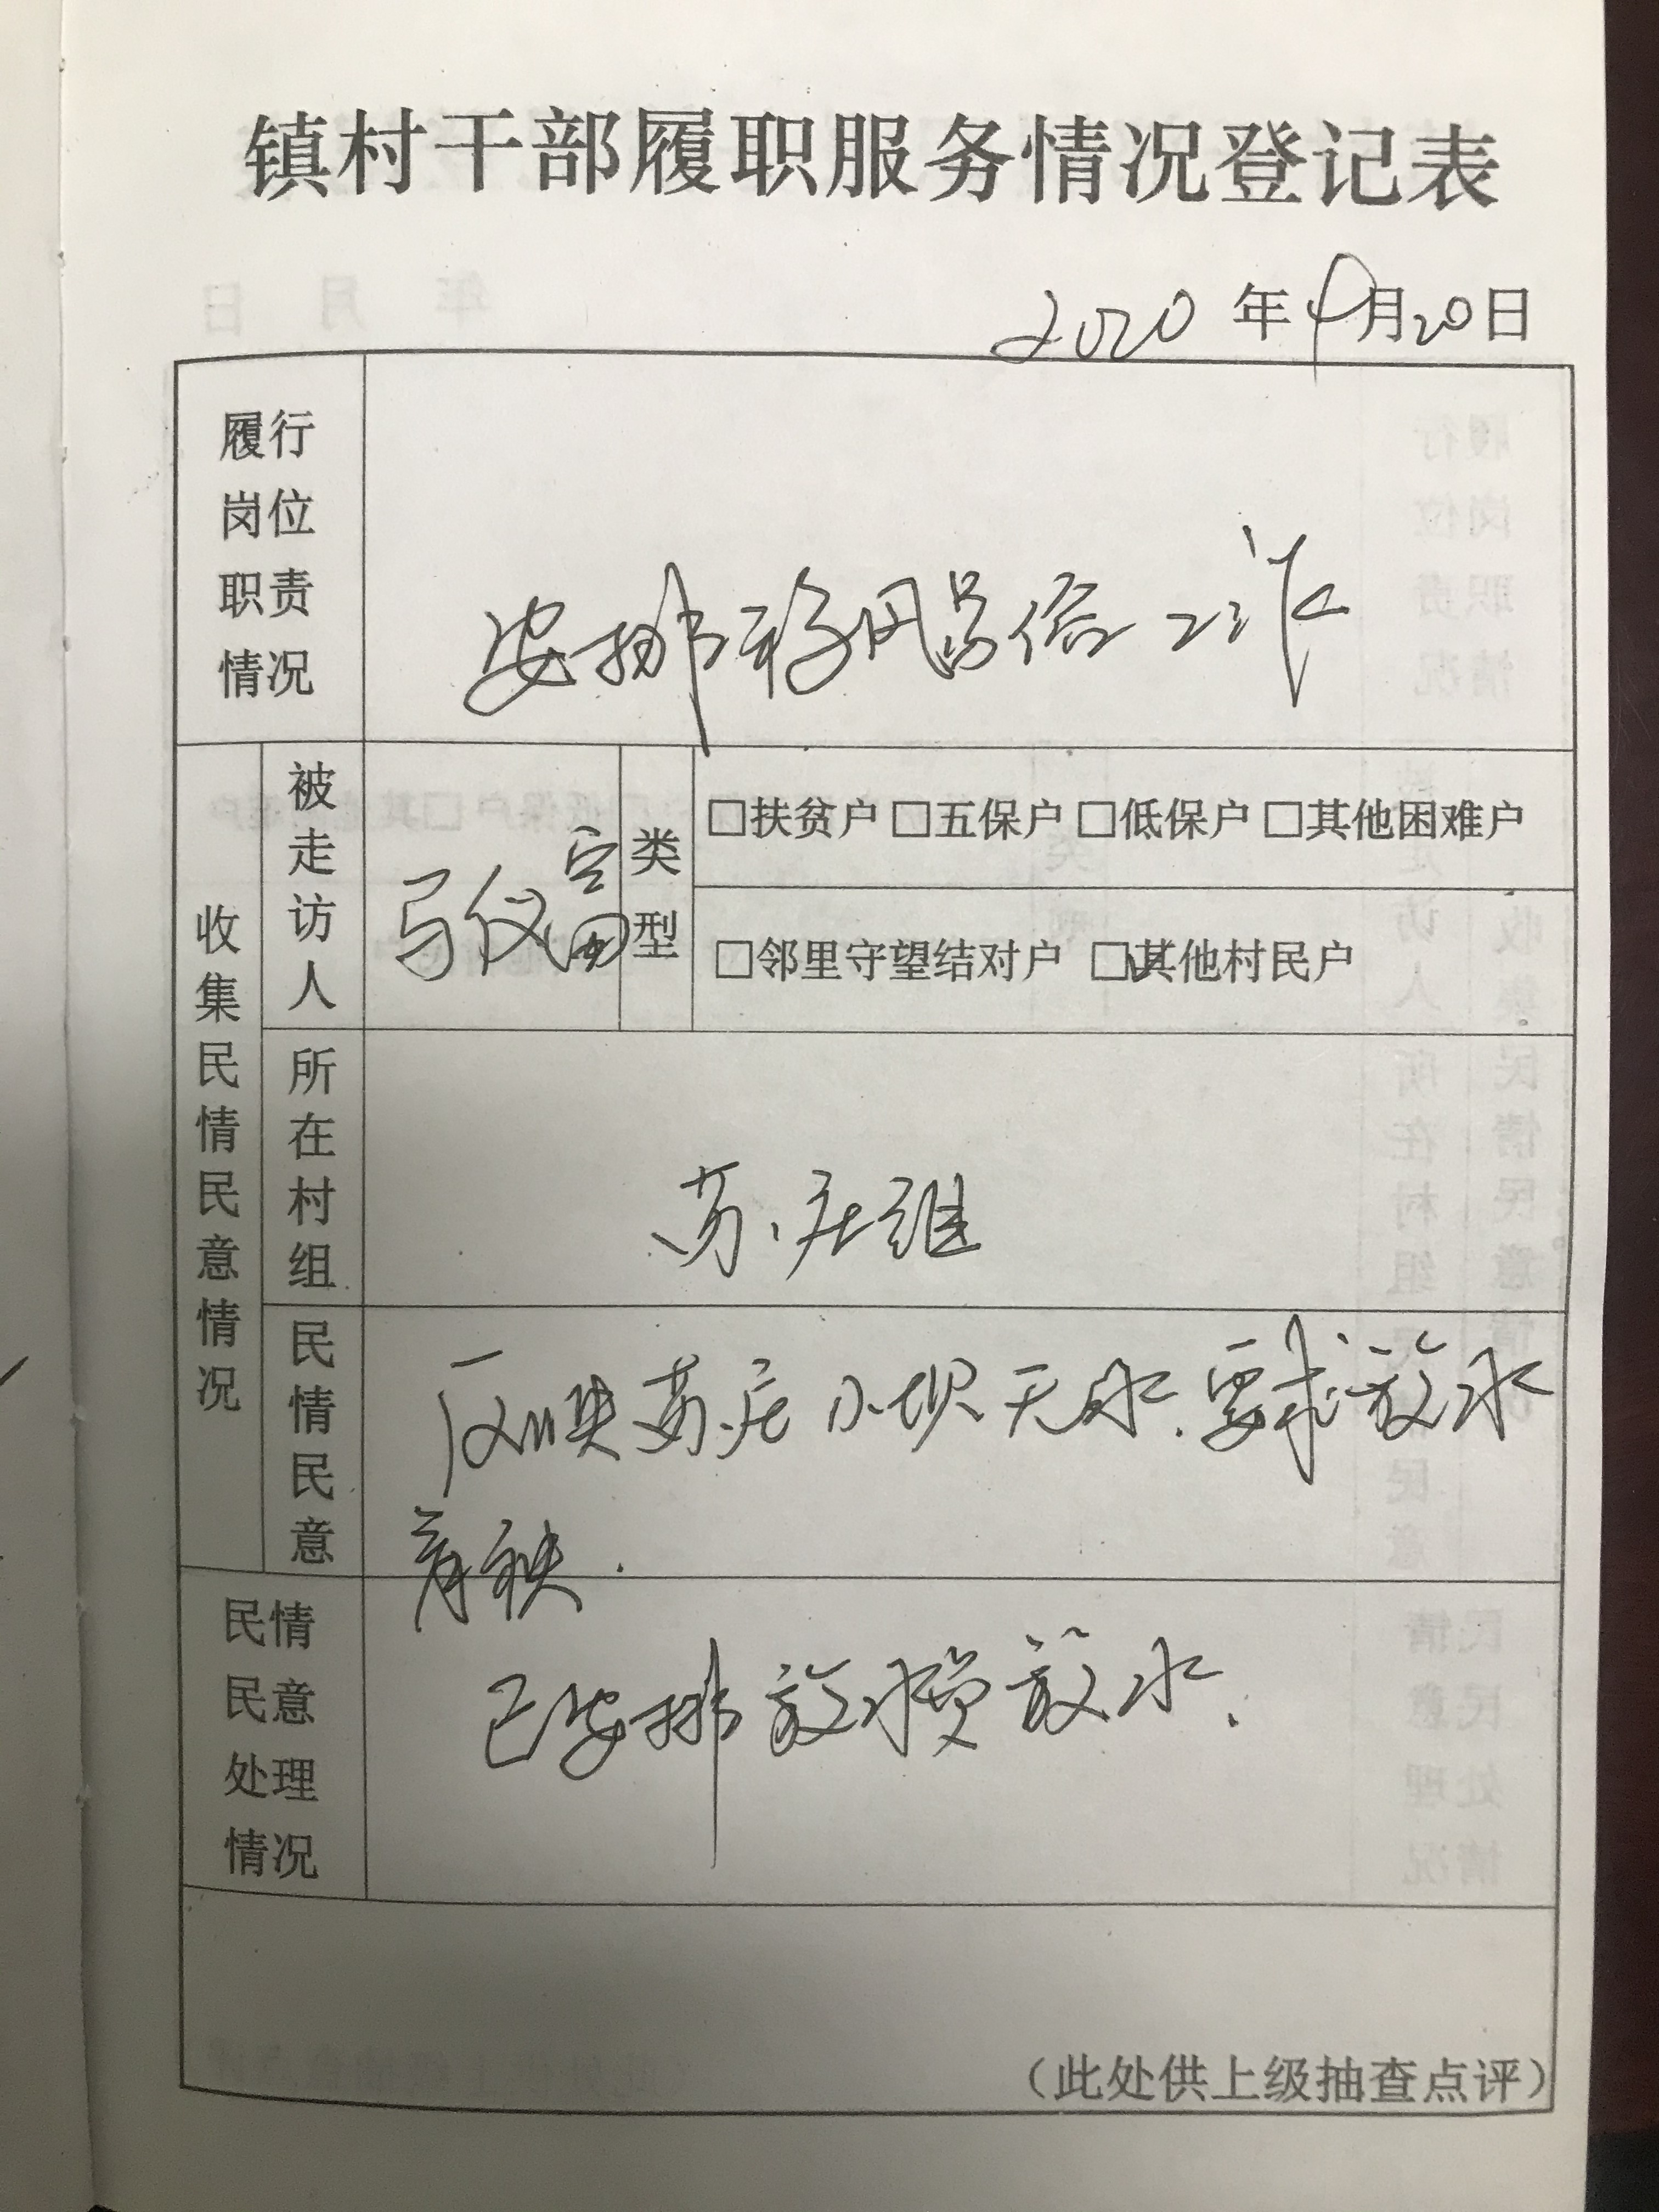 镇村干部履职服务情况登记表
2020年4月20日
履行岗位职责情况
安排移风易俗工作
收集民情民意情况
被走访人
马仪富
类型
□扶贫户 □五保户 □低保户 □其他困难户
□邻里守望结对户 ☑其他村民户
所在村组
苏庄组
民情民意
反映苏庄小坝无水.要求放水
育秧.
民情民意处理情况
已安排放水员放水.
（此处供上级抽查点评）